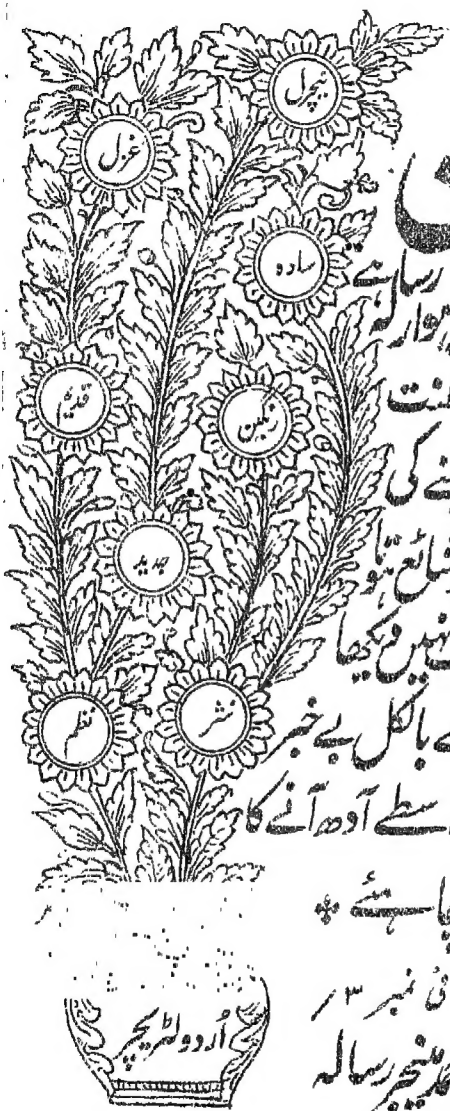 نیچرل
غزل
سادہ
قدیم
رنگین
جدید
نظم
نثر
اُردو لٹریچر
ن
رسا ہے
ہوار
لہ
نے کی
شائع ہوتا
نہیں دیکھا
بالکل بے خبر
سطے آدھ آنے کا
چاہئے
نمبر ۳ ر
منیجر رسالہ